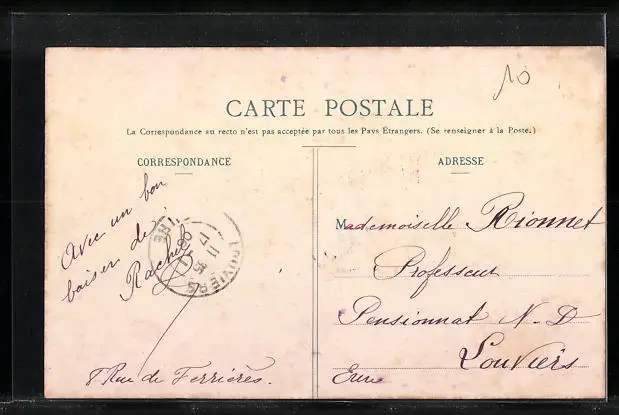 10
CARTE POSTALE
La Correspondance au recto n'est pas acceptée par tous les Pays Etrangers. (Se renseigner à la Poste.)
CORRESPONDANCE
Avec un bon
baiser de
Rachel
8 Rue de Ferrières.
LOUVIERS
EURE
ADRESSE
Mademoiselle Rionnet
Professeur
Pensionnat N-D
Louviers
Eure